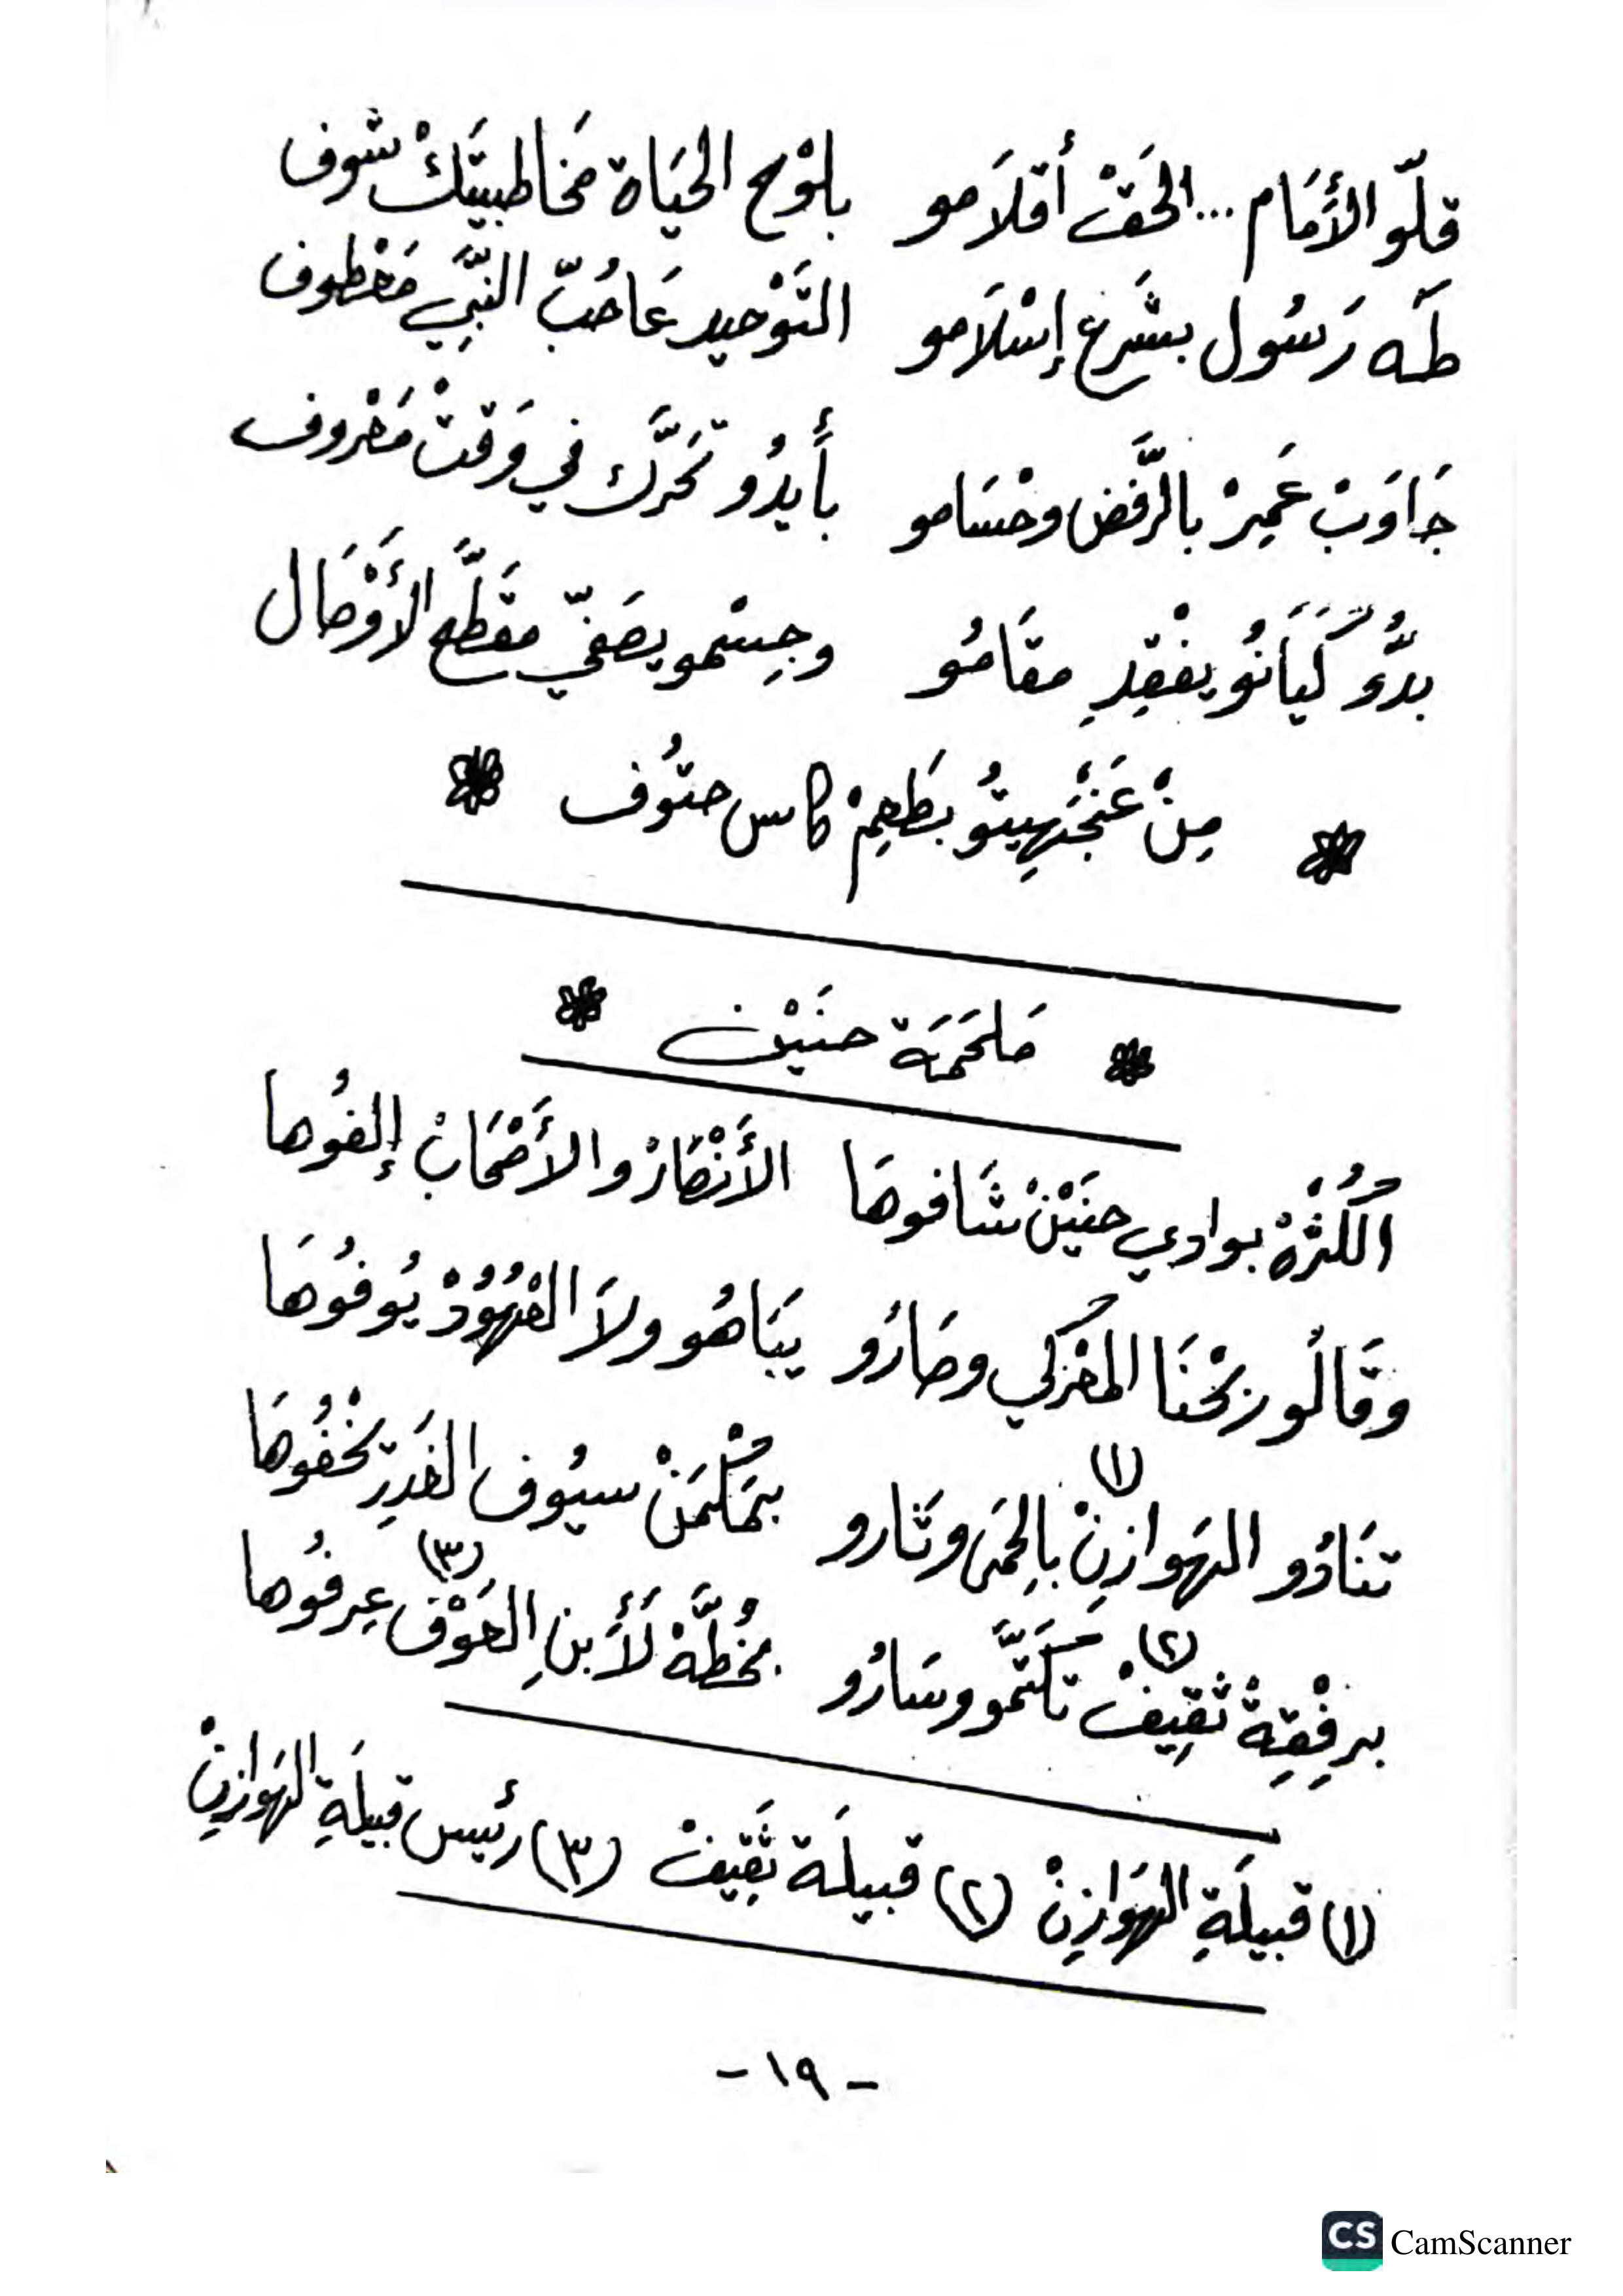 قلّو الأمَام ... الحَقْ أقلاَمو    بلوْح الحيَاة مخَاطبيتَكْ شوف
طَه رَسُول بشَرع إسْلاَمو    التَوْحيد عَا حُبّ النَّبِي مَعْطوف
جَاوَبْ عَمِرْ بالرَّفض وحْسَامو    بأَيدُو تحَرَّك في وَقتْ مَعْروف
بدُّو كَيَانُو يفْقِدِ مقَامُو    وجِسْمو يصَفّي مقَطَّع الأَوْصَال
* مِنْ عَنجَهِيتُو بَطعِمْ كاس حتُوف *
* مَلحَمَة حنَيْن *
الكُثرَةْ بوادي حنَيْنْ شَافوهَا    الأَنْصَارْ والأَصْحَابْ إلفُوها
وقَالُو ربحْنَا المَعْرَكي وصَارُو    يبَاهُو ولاَ العْهُودْ يُوفُوهَا
تنَادُو الهَوازِنْ (١) بالِحمَى وثَارو    سيُوف الغَدِرْ تخْفُوهَا
برِفْقِةْ ثَقِيفْ (٢) تكَتَّمو وسَارُو    بخُطَّةْ لأَبنِ العَوْف (٣) عِرفُوها
(١) قبيلَةِ الهَوازِنْ (٢) قبيلَة ثَقِيفْ (٣) رئيس قبيلَةِ الهَوازِنْ
- ١٩ -
CS CamScanner